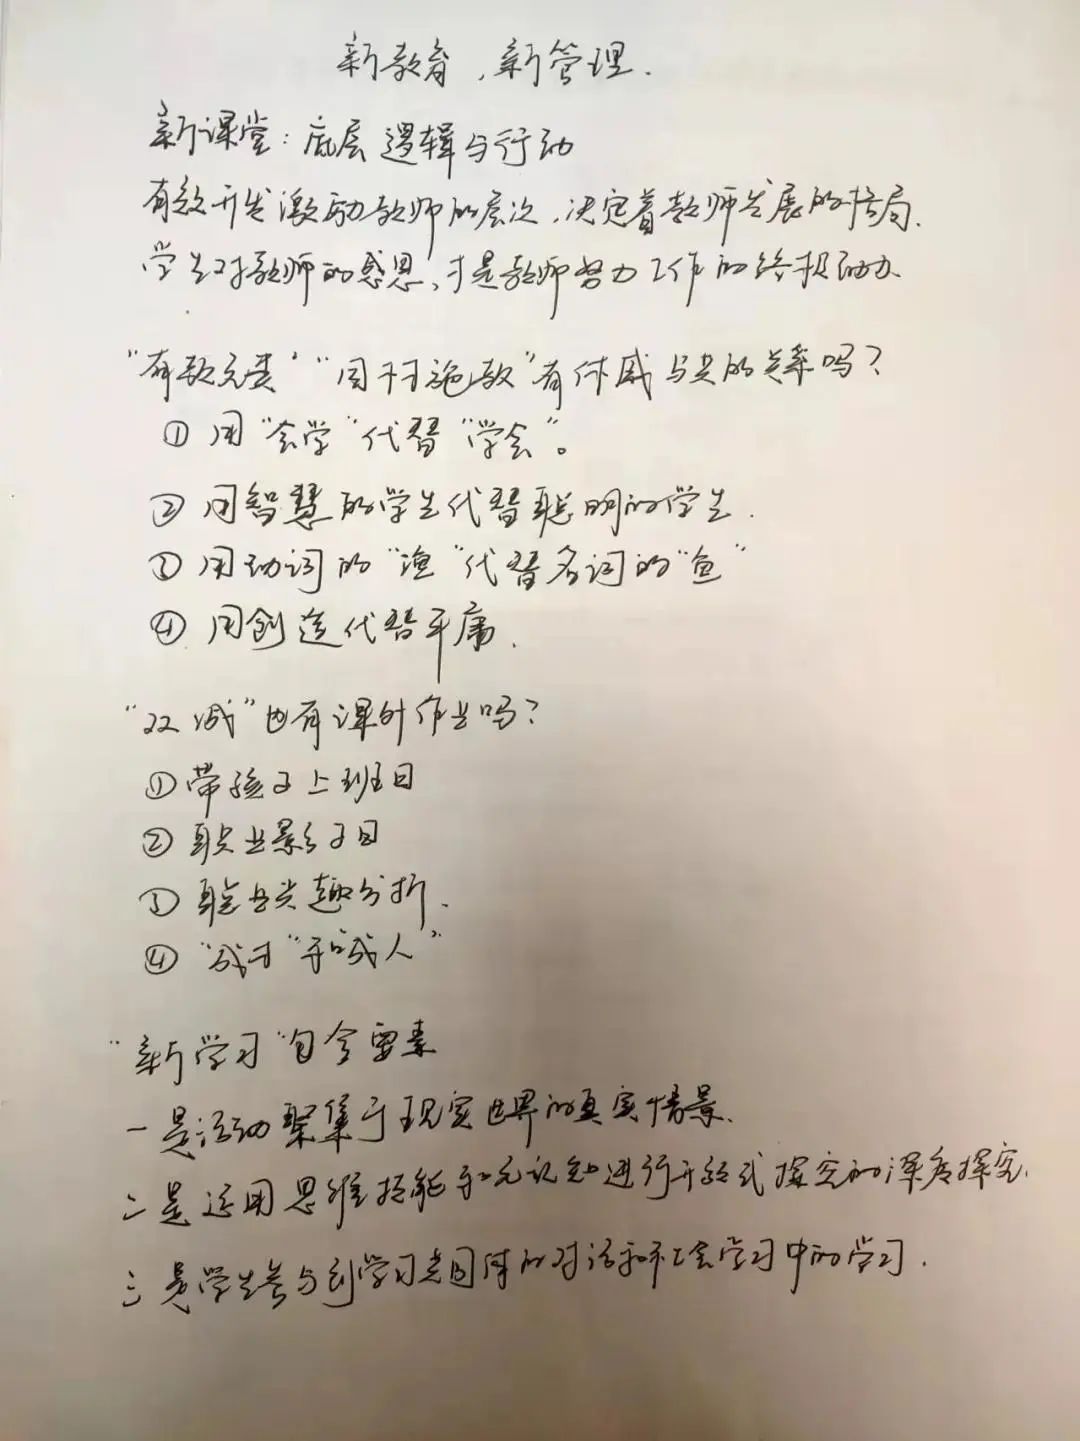 新教育，新管理.
新课堂：底层逻辑与行动
有效开发激励教师的层次，决定着教师发展的格局.
学生对教师的感恩，才是教师努力工作的终极动力.
"有教无类" "因材施教"有体感与共的关系吗？
① 用"会学"代替"学会"。
② 用智慧的学生代替聪明的学生.
③ 用动词的"渔"代替名词的"鱼"
④ 用创造代替平庸.
"双减"也有课外作业吗？
①带孩子上班日
② 职业影子日
③ 职业兴趣分析.
④ "成才"和"成人"
"新学习"包含要素
一是活动聚集于现实世界的真实情景.
二是运用思维技能和元认知进行开放式探究的深度探究.
三是学生参与到学习共同体的对话和社会学习中的学习.